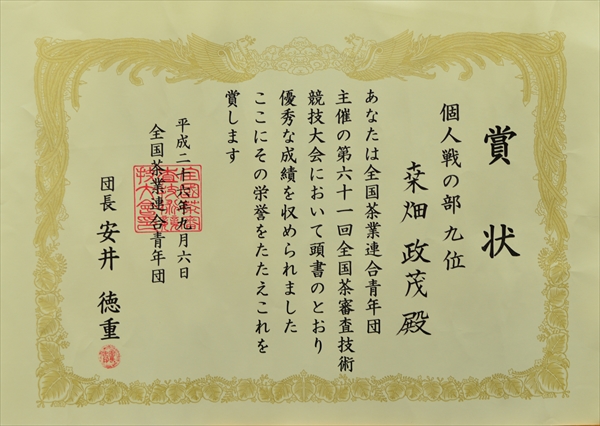 賞状
個人戦の部 九位
桒畑 政茂 殿
あなたは全国茶業連合青年団
主催の第六十一回全国茶審査技術
競技大会において頭書のとおり
優秀な成績を収められました
ここにその栄誉をたたえこれを
賞します
平成二十六年九月六日
全国茶業連合青年団
団長 安井 徳重